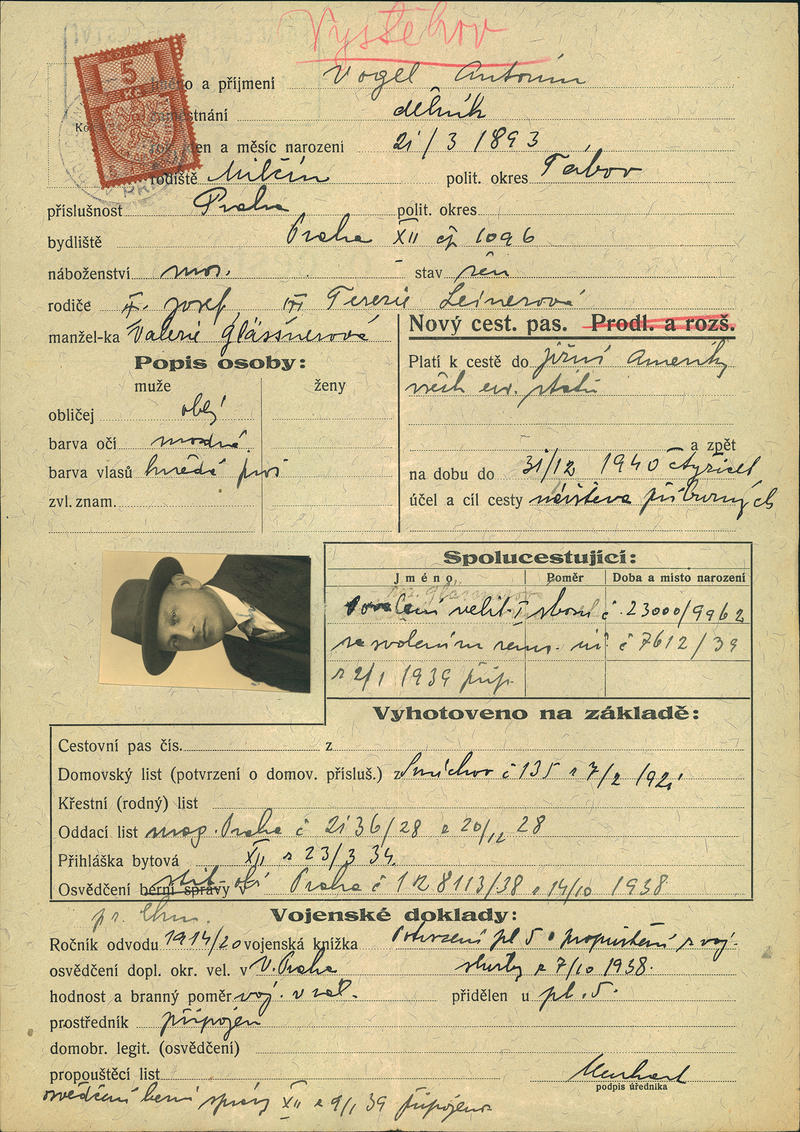 Vystěhov
5
Kč
Jméno a příjmení Vogel Antonín
zaměstnání dělník
rok, den a měsíc narození 21/3 1893
rodiště Milčín polit. okres Tábor
příslušnost Praha polit. okres
bydliště Praha XII čp 1096
náboženství mos. stav žen
rodiče Josef, Terezie Leinerová
manžel-ka Valerie Glässnerová
Nový cest. pas. Prodl. a rozš.
Popis osoby:
muže ženy
Platí k cestě do jižní Ameriky
všech evr. států
obličej oblý
barva očí modrá
a zpět
barva vlasů hnědá
na dobu do 31/12 1940 čtyřicet
zvl. znam.
účel a cíl cesty návštěva příbuzných
Spolucestující:
Jméno Poměr Doba a místo narození
Povolení velit. I sboru č. 23000/9962
se svolením č 7612/39
z 2/1 1939 přip.
Vyhotoveno na základě:
Cestovní pas čís. z
Domovský list (potvrzení o domov. přísluš.) z Smíchov č 135 z 7/2 1921
Křestní (rodný) list
Oddací list mag. Praha č 2136/28 z 20/12 28
Přihláška bytová XII z 23/3 34.
Osvědčení berní správy Praha č 112 8113/38 z 14/10 1938
Vojenské doklady:
Ročník odvodu 1914/20 vojenská knížka Potvrzení pl 5 o propuštění z voj.
osvědčení dopl. okr. vel. v V. Praha služby z 7/10 1938.
hodnost a branný poměr voj. v zál. přidělen u pl. 5.
prostředník připojen
domobr. legit. (osvědčení)
propouštěcí list
podpis úředníka
osvědčení berní správy XII z 9/1 39 připojeno